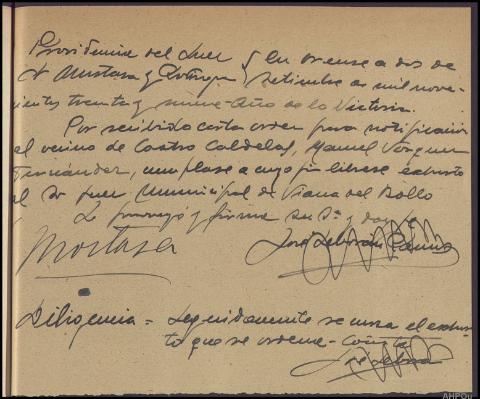 Providencia del Juez } En Orense a dos de
Sr Mostaza y Rodriguez } Setiembre de mil nove-
cientos treinta y nueve- Año de la Victoria.
Por recibido carta orden para notificación
al vecino de Castro Caldelas, Manuel Vazquez
Fernández, cumplase a cuyo fin librese exhorto
al Sr Juez Municipal de Viana del Bollo
Lo proveyó y firma Su Sª y doy fe
Mostaza
José
Diligencia = Seguidamente se cursa el exhor-
to que se ordena- Consta
AHPOu